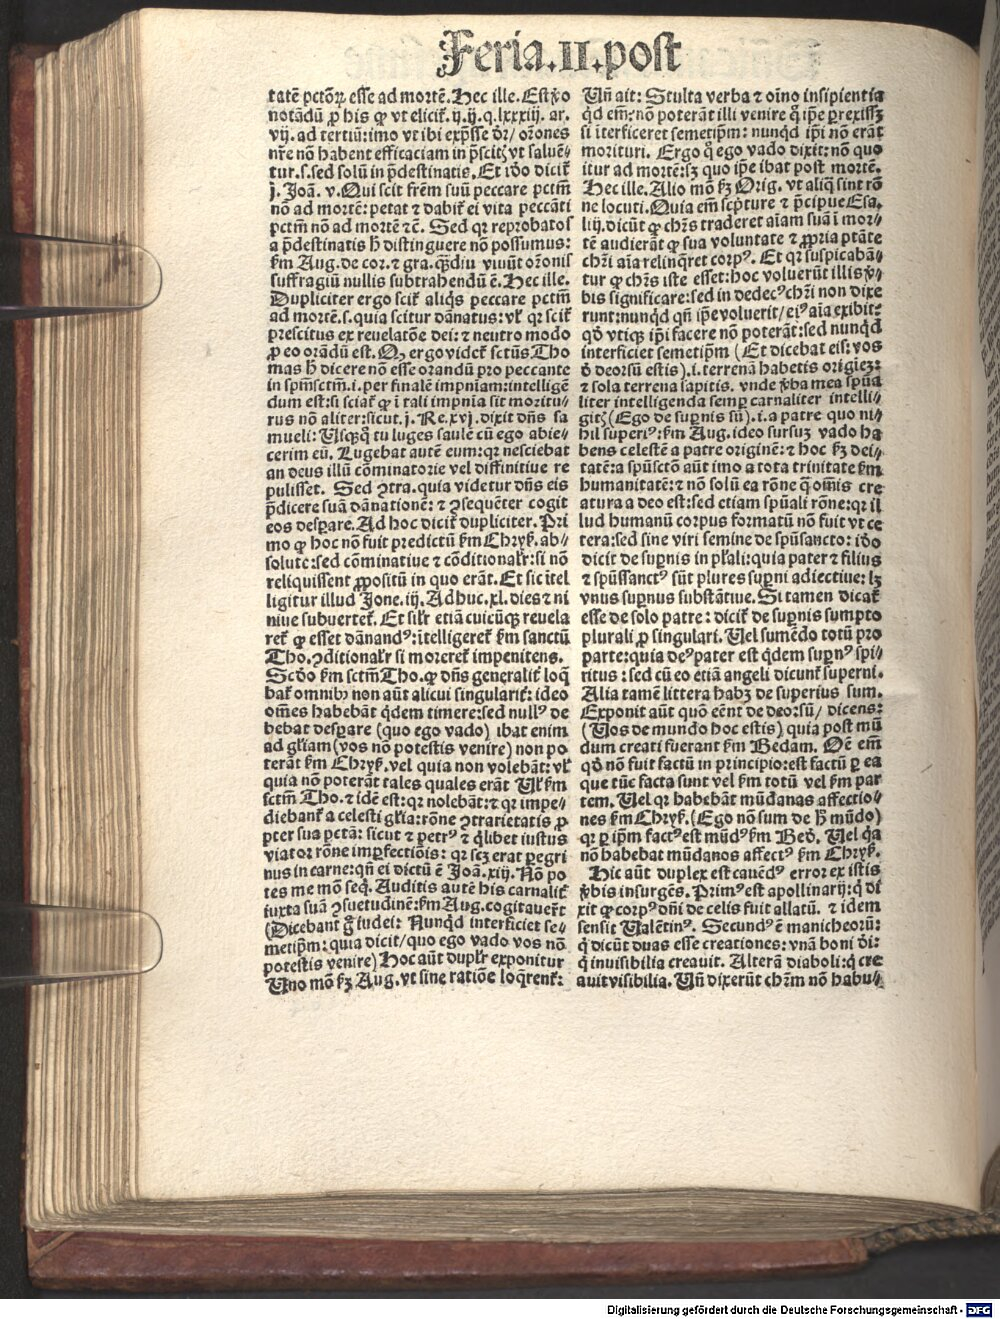 Feria.II.post
tatē pctōꝝ esse ad mortē. Hec ille. Est ꝟo
notādū ꝙ his ꝙ vt elicit᷑.ij.ij.q.lxxxiij. ar.
vij. ad tertiū: imo vt ibi exp̄sse d̄r/ orōnes
nr̄e nō habent efficaciam in p̄scitꝭ vt saluē⸗
tur.s.sed solū in p̄destinatis. Et iō dicit᷑
j. Joā. v. Qui scit fr̄em suū peccare pctm̄
nō ad mortē: petat ⁊ dabit᷑ ei vita peccāti
pctm̄ nō ad mortē ⁊c̄. Sed qꝛ reprobatos
a p̄destinatis h̄ distinguere nō possumus:
ẜm Aug. de cor. ⁊ gra. qᷓ̄diu viuūt orōnis
suffragiū nullis subtrahendū ē. Hec ille.
Dupliciter ergo scit᷑ aliqͥs peccare pctm̄
ad mortē.s. quia scitur dānatus: vl᷑ qꝛ scit᷑
prescitus ex reuelatōe dei: ⁊ neutro modo
ꝓ eo orādū est. Qꝙ ergo videt᷑ sctūs Tho
mas h̄ dicere nō esse orandū pro peccante
in spm̄sctm̄.i. per finalē impniam: intelligē
dum est: si sciat᷑ ꝙ ī tali impnīa sit moritu⸗
rus nō aliter: sicut.j. Re.xvj. dixit dn̄s sa
mueli: Usqꝫqͦ tu luges saulē cū ego abie⸗
cerim eū. Lugebat autē eum: qꝛ nesciebat
an deus illū cōminatorie vel diffinitiue re
pulisset. Sed ꝯtra. quia videtur dn̄s eis
p̄dicere suā dānationē: ⁊ ꝯsequēter cogit
eos desꝑare. Ad hoc dicit᷑ dupliciter. Pri
mo ꝙ hoc nō fuit predictū ẜm Chryẜ. ab⸗
solute: sed cōminatiue ⁊ cōditionalr̄: si nō
reliquissent ꝓpositū in quo erāt. Et sic ītel
ligitur illud Jone. iij. Adhuc.xl. dies ⁊ ni
niue subuertet᷑. Et silr̄ etiā cuicūqꝫ reuela
ret᷑ ꝙ esset dānandꝰ: ītelligeret᷑ ẜm sanctū
Tho. ꝯditionalr̄ si moreret᷑ impenitens.
Scd̄o ẜm sctm̄ Tho. ꝙ dn̄s generalit᷑ loq̄
bat᷑ omnibꝫ non aūt alicui singularit᷑: ideo
om̄es habebāt qͥdem timere: sed nullꝰ de
bebat desꝑare (quo ego vado) ibat enim
ad gl᷑iam (vos nō potestis venire) non po
terāt ẜm Chryẜ. vel quia non volebāt: vl᷑
quia nō poterāt tales quales erāt Ul᷑ ẜm
sctm̄ Tho. ⁊ idē est: qꝛ nolebāt: ⁊ qꝛ impe⸗
diebant᷑ a celesti gl᷑ia: rōne ꝯtrarietatis ꝓ
pter sua pctā: sicut ⁊ petrꝰ ⁊ qͥlibet iustus
viator rōne imꝑfectiōis: qꝛ scꝫ erat ꝑegri
nus in carne: qn̄ ei dictū ē Joā.xiij. Nō po
tes me mō seqͥ. Auditis autē his carnalit᷑
iuxta suā ꝯsuetudinē: ẜm Aug. cogitauer̄t
(Dicebant g̊ iudei: Nunqͥd interficiet se⸗
metip̄m: quia dicit/ quo ego vado vos nō
potestis venire) Hoc aūt duplr̄ exponitur
Uno mō ẜꝫ Aug. vt sine ratiōe loqͥrent᷑:
Un̄ ait: Stulta verba ⁊ oīno insipientia
qͥd em̄: nō poterāt illi venire qͦ ip̄e ꝑrexissꝫ
si īterficeret semetip̄m: nunqͥd ip̄i nō erāt
morituri. Ergo qͦ ego vado dixit: nō quo
itur ad mortē: sꝫ quo ip̄e ibat post mortē.
Hec ille. Alio mō ẜꝫ Orig. vt aliqͥ sint rō
ne locuti. Quia em̄ scp̄ture ⁊ p̄cipue Esa.
liij. dicūt ꝙ chr̄s traderet aīam suā ī mor⸗
tē audierāt ꝙ sua voluntate ⁊ ꝓpria ptāte
chr̄i aīa relinqͥret corpꝰ. Et qꝛ suspicabā⸗
tur ꝙ chr̄s iste esset: hoc voluerūt illis ꝟ⸗
bis significare: sed in dedecꝰ chr̄i non dixe
runt: nunqͥd qn̄ ip̄e voluerit/ eiꝰ aīa exibit:
qd̄ vtiqꝫ ip̄i facere nō poterāt: sed nunqͥd
interficiet semetip̄m (Et dicebat eis: vos
d̄ deorsū estis).i. terrenā habetis origiez:
⁊ sola terrena sapitis. vnde ꝟba mea spūa
liter intelligenda semꝑ carnaliter intelli⸗
gitꝭ (Ego de suꝑnis sū).i. a patre quo ni⸗
hil superiꝰ: ẜm Aug. ideo sursuꝫ vado ha
bens celestē a patre originē: ⁊ hoc ẜꝫ dei⸗
tatē: a spūsctō aūt imo a tota trinitate ẜm
humanitatē: ⁊ nō solū ea rōne qͣ om̄is cre
atura a deo est: sed etiam spūali rōne: qꝛ il
lud humanū corpus formatū nō fuit vt ce
tera: sed sine viri semine de spūsancto: iō
dicit de suꝑnis in pl᷑ali: quia pater ⁊ filius
⁊ spūssanctꝰ sūt plures suꝑni adiectiue: lꝫ
vnus suꝑnus substātiue. Si tamen dicat᷑
esse de solo patre: dicit᷑ de suꝑnis sumpto
plurali ꝓ singulari. Uel sumēdo totū pro
parte: quia deꝰ pater est qͥdem suꝑnꝰ spi⸗
ritus: sed cū eo etiā angeli dicunt᷑ superni.
Alia tamē littera habꝫ de superius sum.
Exponit aūt quō eēnt de deo: sū/ dicens:
(Uos de mundo hoc estis) quia post mū
dum creati fuerant ẜm Bedam. Oē em̄
qd̄ nō fuit factū in principio: est factū ꝑ ea
que tūc facta sunt vel ẜm totū vel ẜm par
tem. Uel qꝛ habebāt mūdanas affectio⸗
nes ẜm Chryẜ. (Ego nō sum de h̄ mūdo)
qꝛ ꝑ ip̄m factꝰ est mūdꝰ ẜm Bed̄. Uel qͥa
nō habebat mūdanos affectꝰ ẜm Chryẜ.
Hic aūt duplex est cauēdꝰ error ex istis
ꝟbis insurgēs. Primꝰ est apollinarij: qͥ di
xit ꝙ corpꝰ dn̄i de celis fuit allatū. ⁊ idem
sensit Valētinꝰ. Secundꝰ ē manicheorū:
qͥ dicūt duas esse creationes: vnā boni d̄i:
qͥ inuisibilia creauit. Alterā diaboli: qͥ cre
auit visibilia. Un̄ dixerūt chr̄m nō habu⸗
Digitalisierung gefördert durch die Deutsche Forschungsgemeinschaft - DFG